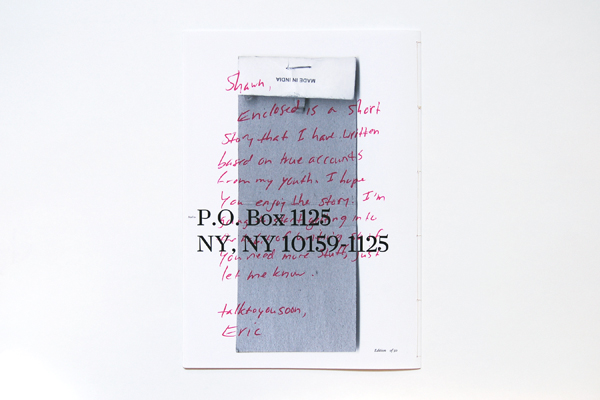 MADE IN INDIA
Shawn,
Enclosed is a short
story that I have written
based on true accounts
from my youth. I hope
you enjoy the story. I'm
P.O. Box 1125
NY, NY 10159-1125
you need more stuff, just
let me know.
talk to you soon,
Eric
Edition